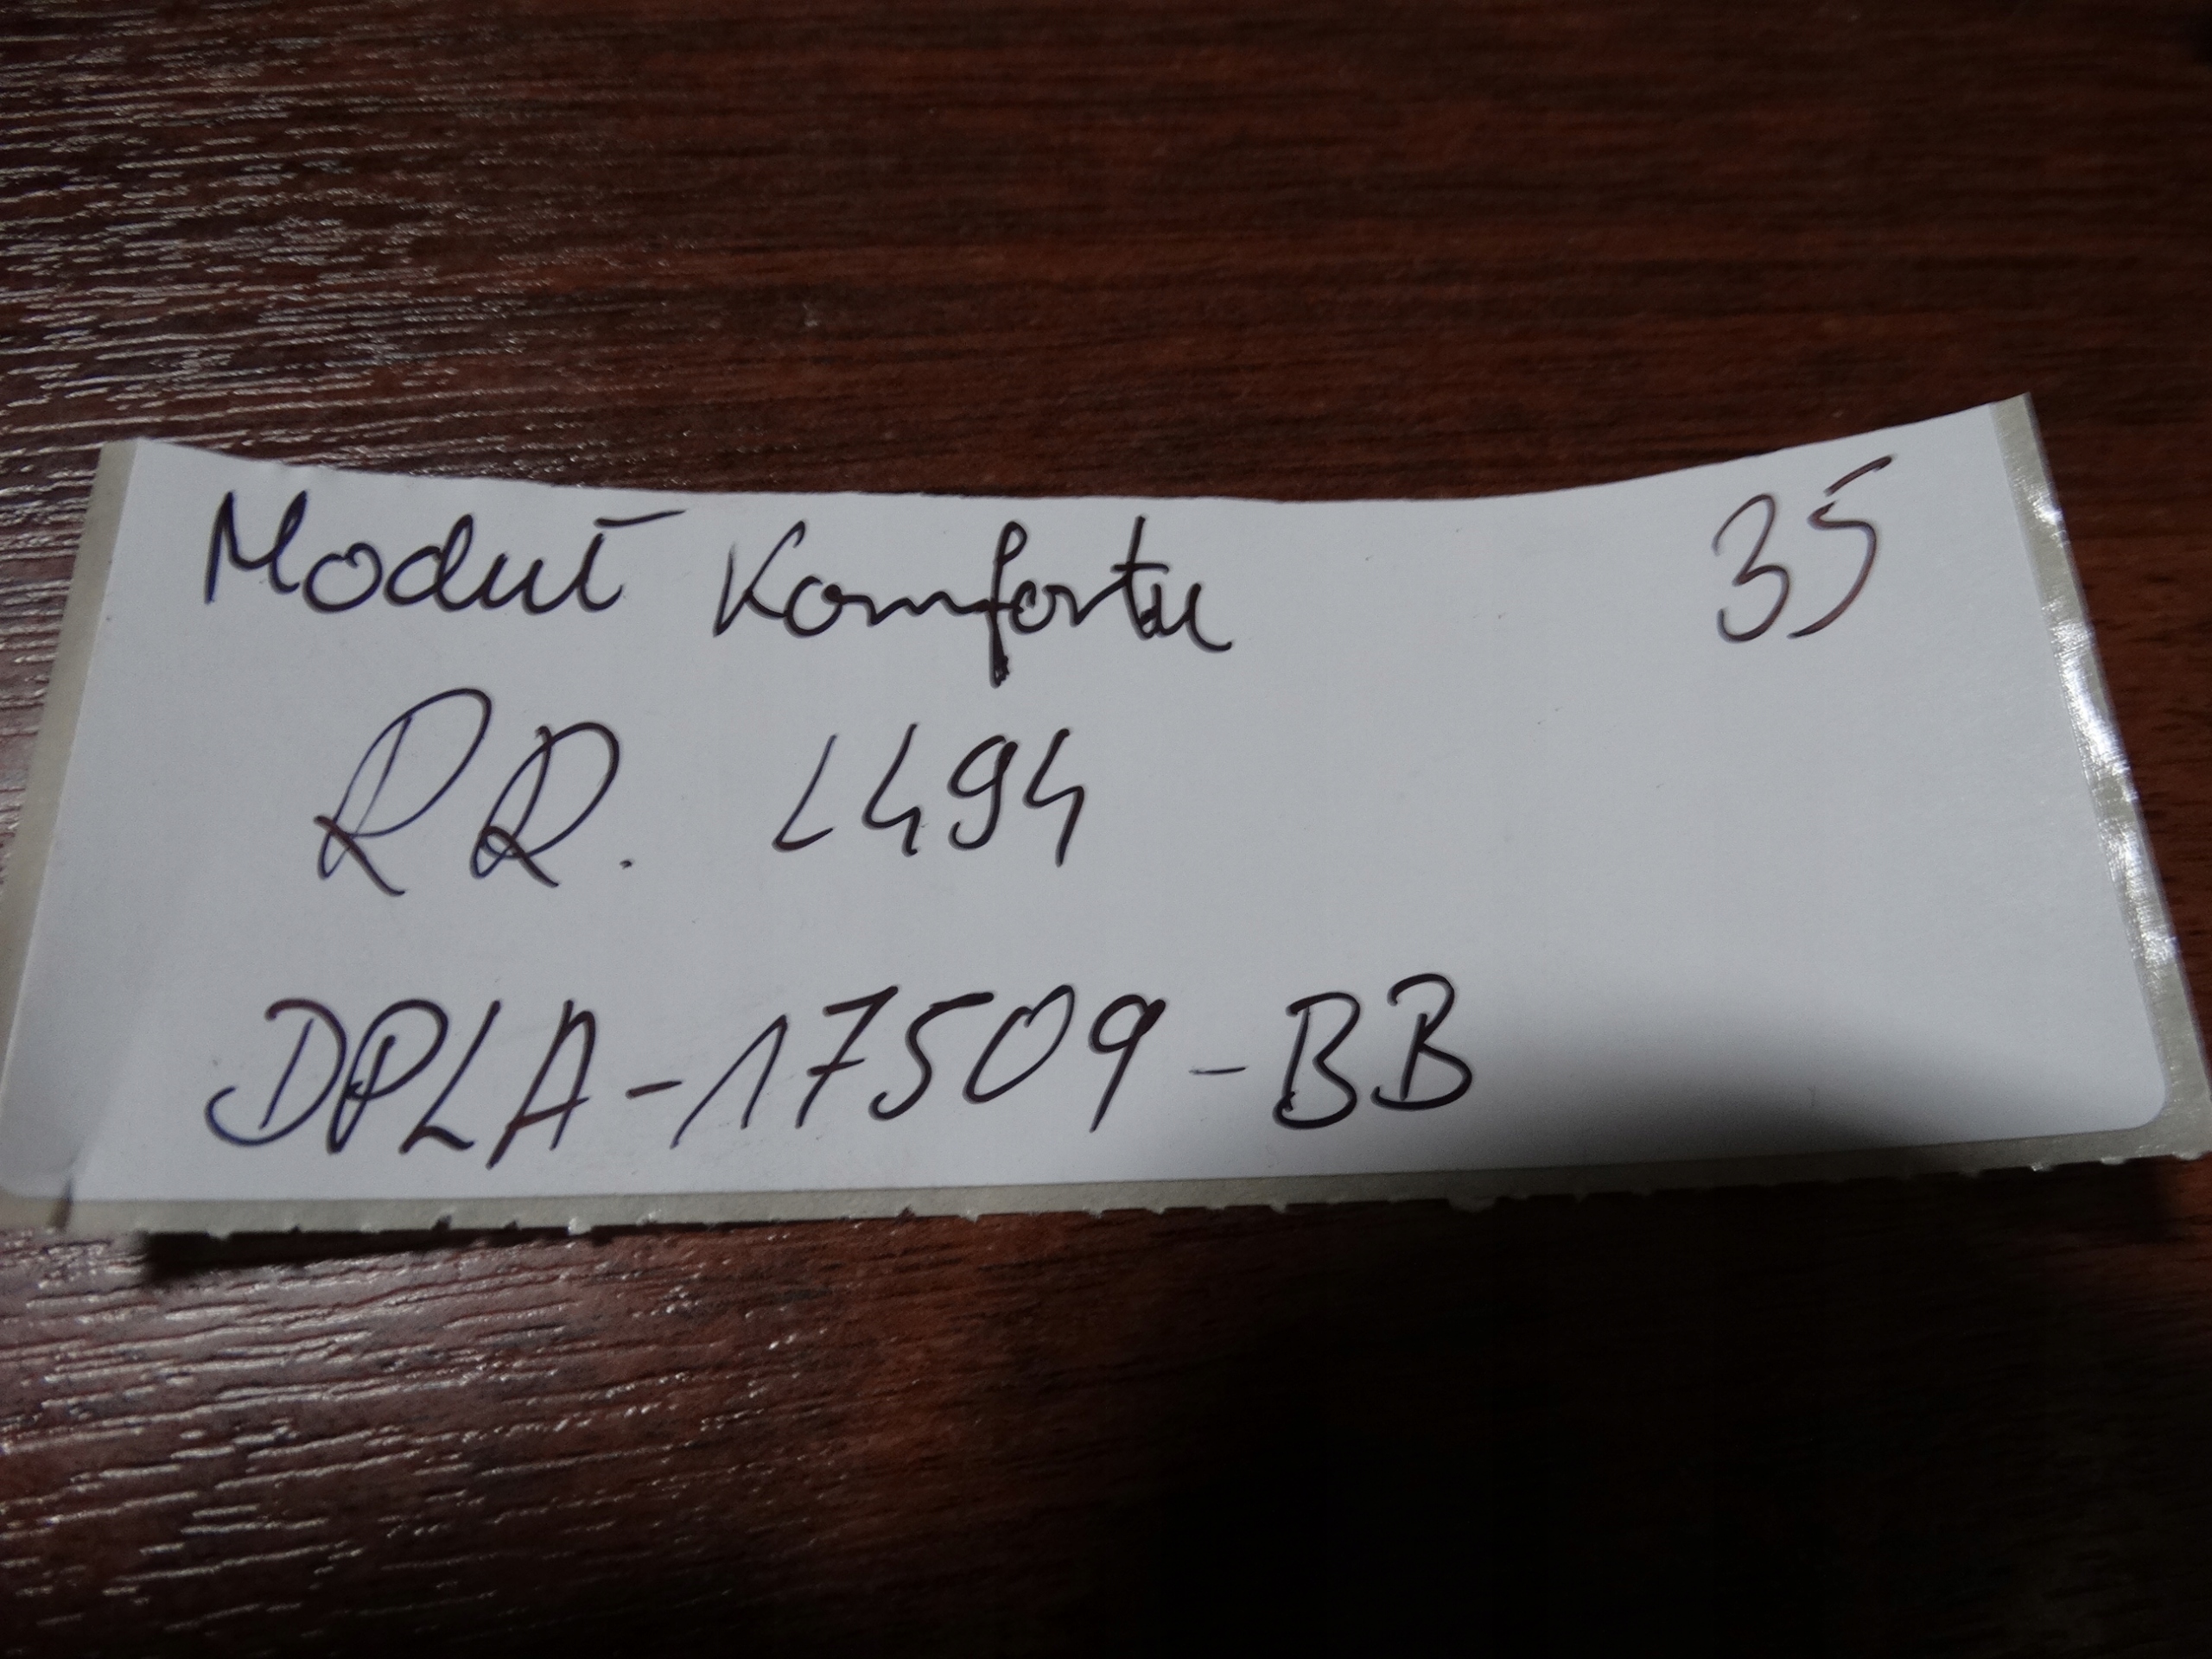 Moduł Komfortu 35
RR. L494
DPLA-17509-BB